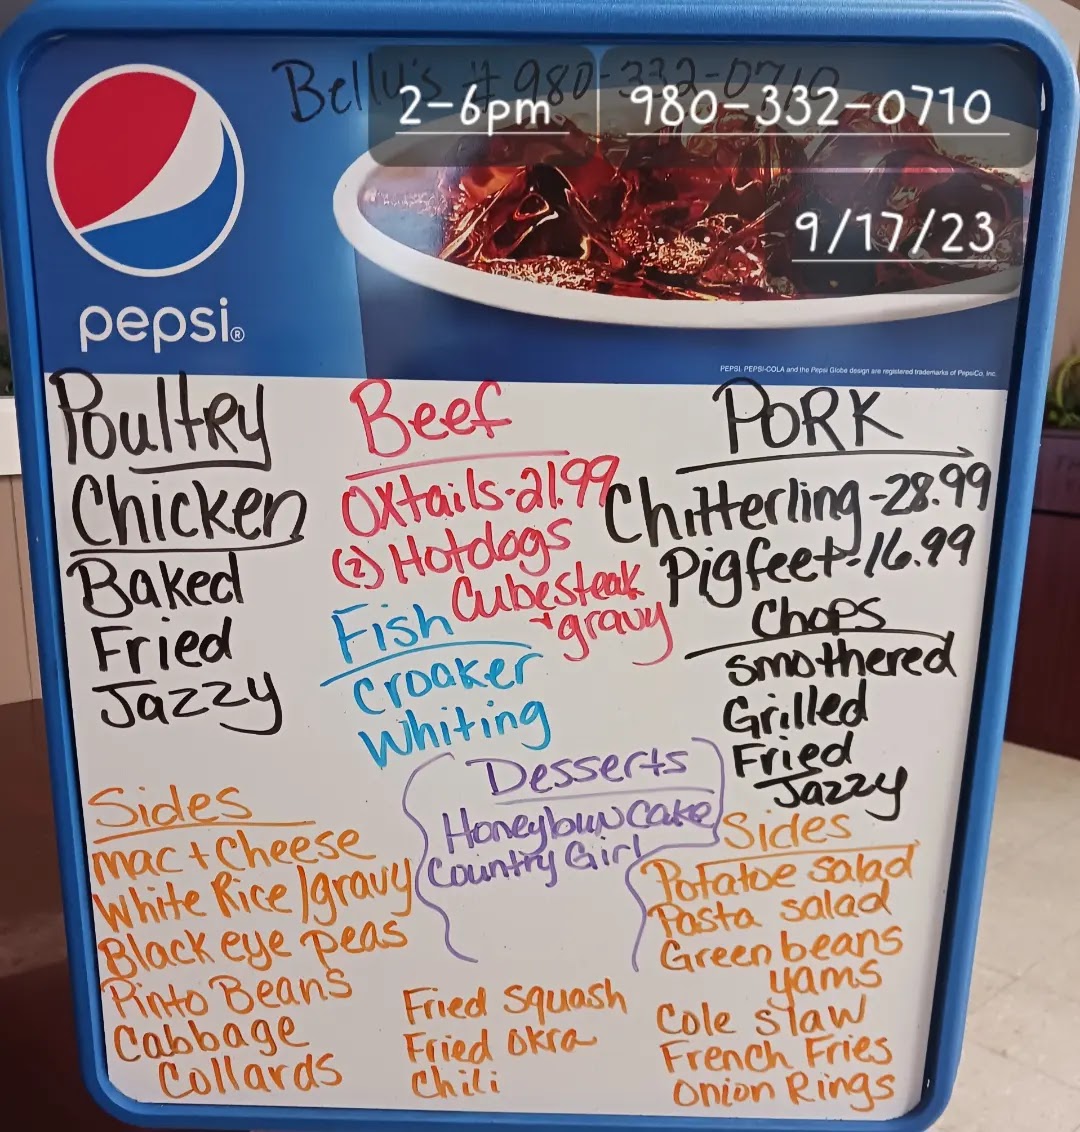 Belly's # 980-332-0710
2-6pm
980-332-0710
9/17/23
pepsi®
PEPSI, PEPSI-COLA and the Pepsi Globe design are registered trademarks of PepsiCo, Inc.
Poultry
Chicken
Baked
Fried
Jazzy
Beef
Oxtails-21.99
(2) Hotdogs
Cubesteak
+gravy
Fish
Croaker
Whiting
PORK
Chitterling-28.99
Pigfeet-16.99
Chops
smothered
Grilled
Fried
Jazzy
Desserts
Honeybun Cake
Country Girl
Sides
Mac + Cheese
White Rice/gravy
Black eye peas
Pinto Beans
Cabbage
Collards
Fried Squash
Fried Okra
Chili
Sides
Potatoe salad
Pasta salad
Green beans
yams
Cole slaw
French Fries
Onion Rings